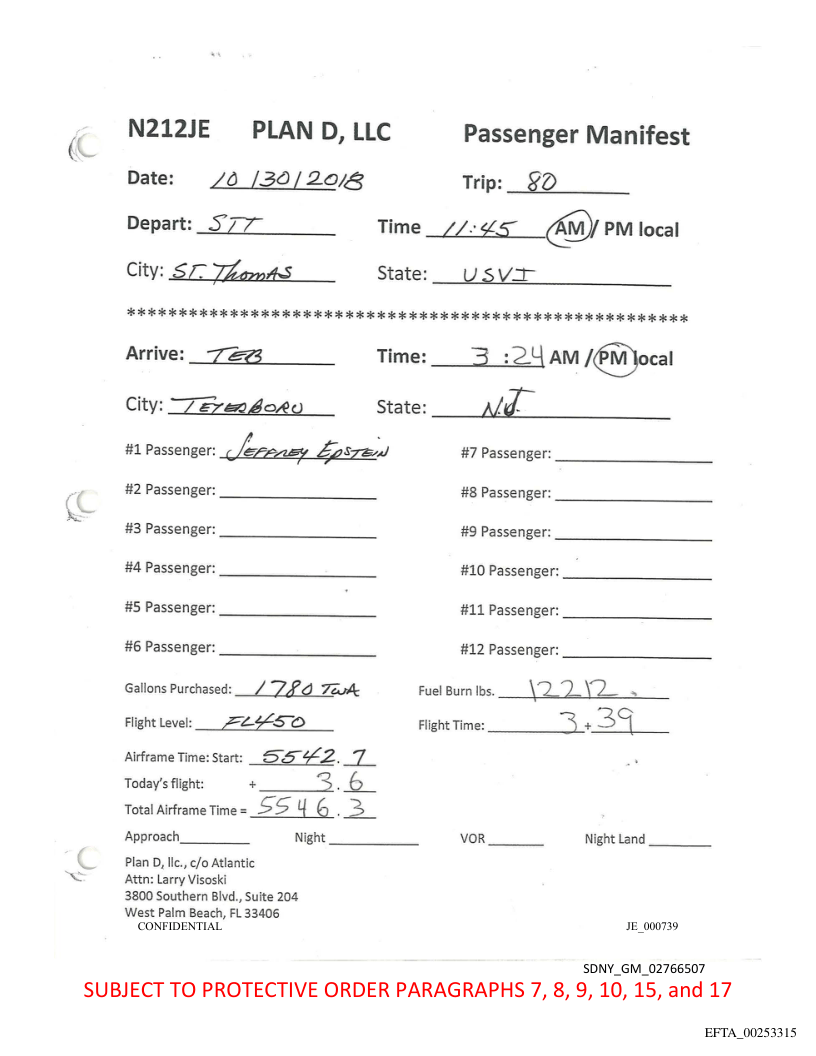 N212JE PLAN D, LLC Passenger Manifest
Date: 10/30/2018 Trip: 80
Depart: STT Time 11:45 AM / PM local
City: ST. Thomas State: USVI
******************************************************
Arrive: TEB Time: 3:24 AM / PM local
City: TETERBORO State: N.J.
#1 Passenger: JEFFREY EPSTEIN #7 Passenger:
#2 Passenger: #8 Passenger:
#3 Passenger: #9 Passenger:
#4 Passenger: #10 Passenger:
#5 Passenger: #11 Passenger:
#6 Passenger: #12 Passenger:
Gallons Purchased: 1780 TWA Fuel Burn lbs. 12212.
Flight Level: FL450 Flight Time: 3+39
Airframe Time: Start: 5542.7
Today's flight: + 3.6
Total Airframe Time = 5546.3
Approach Night VOR Night Land
Plan D, llc., c/o Atlantic
Attn: Larry Visoski
3800 Southern Blvd., Suite 204
West Palm Beach, FL 33406
CONFIDENTIAL JE_000739
SDNY_GM_02766507
SUBJECT TO PROTECTIVE ORDER PARAGRAPHS 7, 8, 9, 10, 15, and 17
EFTA_00253315